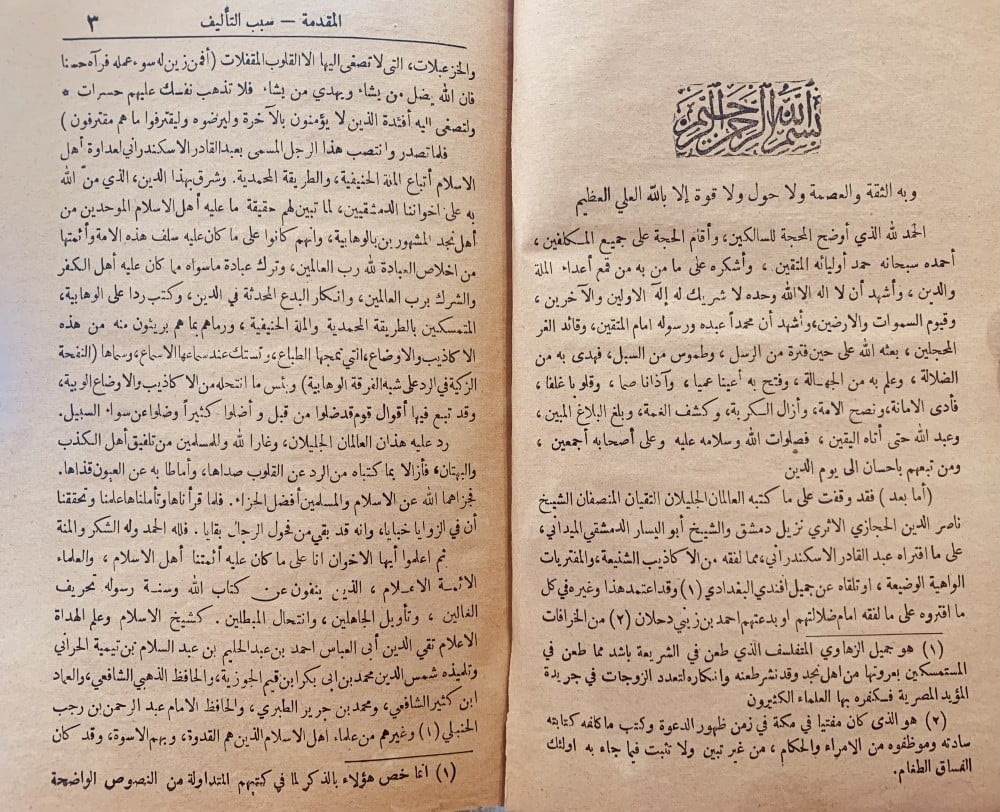 بسم الله الرحمن الرحيم
وبه الثقة والعصمة ولا حول ولا قوة إلا بالله العلي العظيم
الحمد لله الذي أوضح المحجة للسالكين، وأقام الحجة على جميع المكلفين،
أحمده سبحانه حمد أوليائه المتقين، وأشكره على ما من به من قمع أعداء الملة
والدين، وأشهد أن لا اله الا الله وحده لا شريك له إله الاولين والآخرين،
وقيوم السموات والارضين، وأشهد أن محمداً عبده ورسوله امام المتقين، وقائد الغر
المحجلين، بعثه الله على حين فترة من الرسل، وطموس من السبل، فهدى به من
الضلالة، وعلم به من الجهالة، وفتح به أعينا عميا، وآذانا صما، وقلوبا غلفا،
فأدى الامانة، ونصح الامة، وأزال الكربة، وكشف الغمة، وبلغ البلاغ المبين،
وعبد الله حتى أتاه اليقين، فصلوات الله وسلامه عليه وعلى أصحابه أجمعين،
ومن تبعهم باحسان الى يوم الدين
(أما بعد) فقد وقفت على ما كتبه العالمان الجليلان التقيان المنصفان الشيخ
ناصر الدين الحجازي الاثري نزيل دمشق والشيخ أبو اليسار الدمشقي الميداني،
على ما افتراه عبد القادر الاسكندراني، مما لفقه من الاكاذيب الشنيعة، والمفتريات
الواهية الوضيعة، او تلقاه عن جميل افندي البغدادي (١) وقد اعتمد هذا وغيره في كل
ما افتروه على ما لفقه امام ضلالتهم او بدعتهم احمد بن زيني دحلان (٢) من الخرافات
(١) هو جميل الزهاوي المتفلسف الذي طعن في الشريعة باشد مما طعن في
المستمسكين بعروتها من اهل نجد وقد نشر طعنه وانكاره لتعدد الزوجات في جريدة
المؤيد المصرية فكفره بها العلماء الكثيرون
(٢) هو الذى كان مفتيا في مكة في زمن ظهور الدعوة وكتب ما كلفه كتابته
سادته وموظفوه من الامراء والحكام، من غير تبين ولا تثبت فيما جاء به اولئك
الفساق الطغام.
المقدمة — سبب التأليف ٣
والخزعبلات، التى لا تصغى اليها الا القلوب المقفلات (أفمن زين له سوء عمله فرآه حسنا
فان الله يضل من يشاء ويهدي من يشاء فلا تذهب نفسك عليهم حسرات *
ولتصغى اليه أفئدة الذين لا يؤمنون بالآخرة وليرضوه وليقترفوا ما هم مقترفون)
فلما تصدر وانتصب هذا الرجل المسمى بعبد القادر الاسكندراني لعداوة أهل
الاسلام أتباع الملة الحنيفية، والطريقة المحمدية. وشرق بهذا الدين، الذي منّ الله
به على اخواننا الدمشقيين، لما تبين لهم حقيقة ما عليه أهل الاسلام الموحدين من
أهل نجد المشهورين بالوهابية، وانهم كانوا على ما كان عليه سلف هذه الامة وأئمتها
من اخلاص العبادة لله رب العالمين، وترك عبادة ماسواه مما كان عليه أهل الكفر
والشرك برب العالمين، وانكار البدع المحدثة في الدين، وكتب ردا على الوهابية،
المتمسكين بالطريقة المحمدية والملة الحنيفية، ورماهم بما هم بريئون منه من هذه
الاكاذيب والاوضاع، التي تمجها الطباع، وتستك عند سماعها الاسماع، وسماها (النفحة
الزكية في الرد على شبه الفرقة الوهابية) وبئس ما انتحله من الاكاذيب والاوضاع الوبية،
وقد تبع فيها أقوال قوم قد ضلوا من قبل وأضلوا كثيراً وضلوا عن سواء السبيل.
رد عليه هذان العالمان الجليلان، وغارا لله وللمسلمين من تلفيق أهل الكذب
والبهتان، فأزالا بما كتباه من الرد عن القلوب صداها، وأماطا به عن العيون قذاها.
فجزاهما الله عن الاسلام والمسلمين أفضل الجزاء. فلما قرأناها وتأملناها علمنا وتحققنا
أن في الزوايا خبايا، وانه قد بقي من فحول الرجال بقايا. فلله الحمد وله الشكر والمنة
ثم اعلموا أيها الاخوان انا على ما كان عليه أئمتنا أهل الاسلام، والعلماء
الائمة الاعلام، الذين ينفون عن كتاب الله وسنة رسوله تحريف
الغالين، وتأويل الجاهلين، وانتحال المبطلين. كشيخ الاسلام وعلم الهداة
الاعلام تقي الدين أبى العباس احمد بن عبد الحليم بن عبد السلام بن تيمية الحراني
وتلميذه شمس الدين محمد بن ابى بكر ابن قيم الجوزية، والحافظ الذهبي الشافعي، والعماد
ابن كثير الشافعي، ومحمد بن جرير الطبري، والحافظ الامام عبد الرحمن بن رجب
الحنبلي (١) وغيرهم من علماء اهل الاسلام الذين هم القدوة، وبهم الاسوة، وقد كان
(١) انما خص هؤلاء بالذكر لما في كتبهم المتداولة من النصوص الواضحة